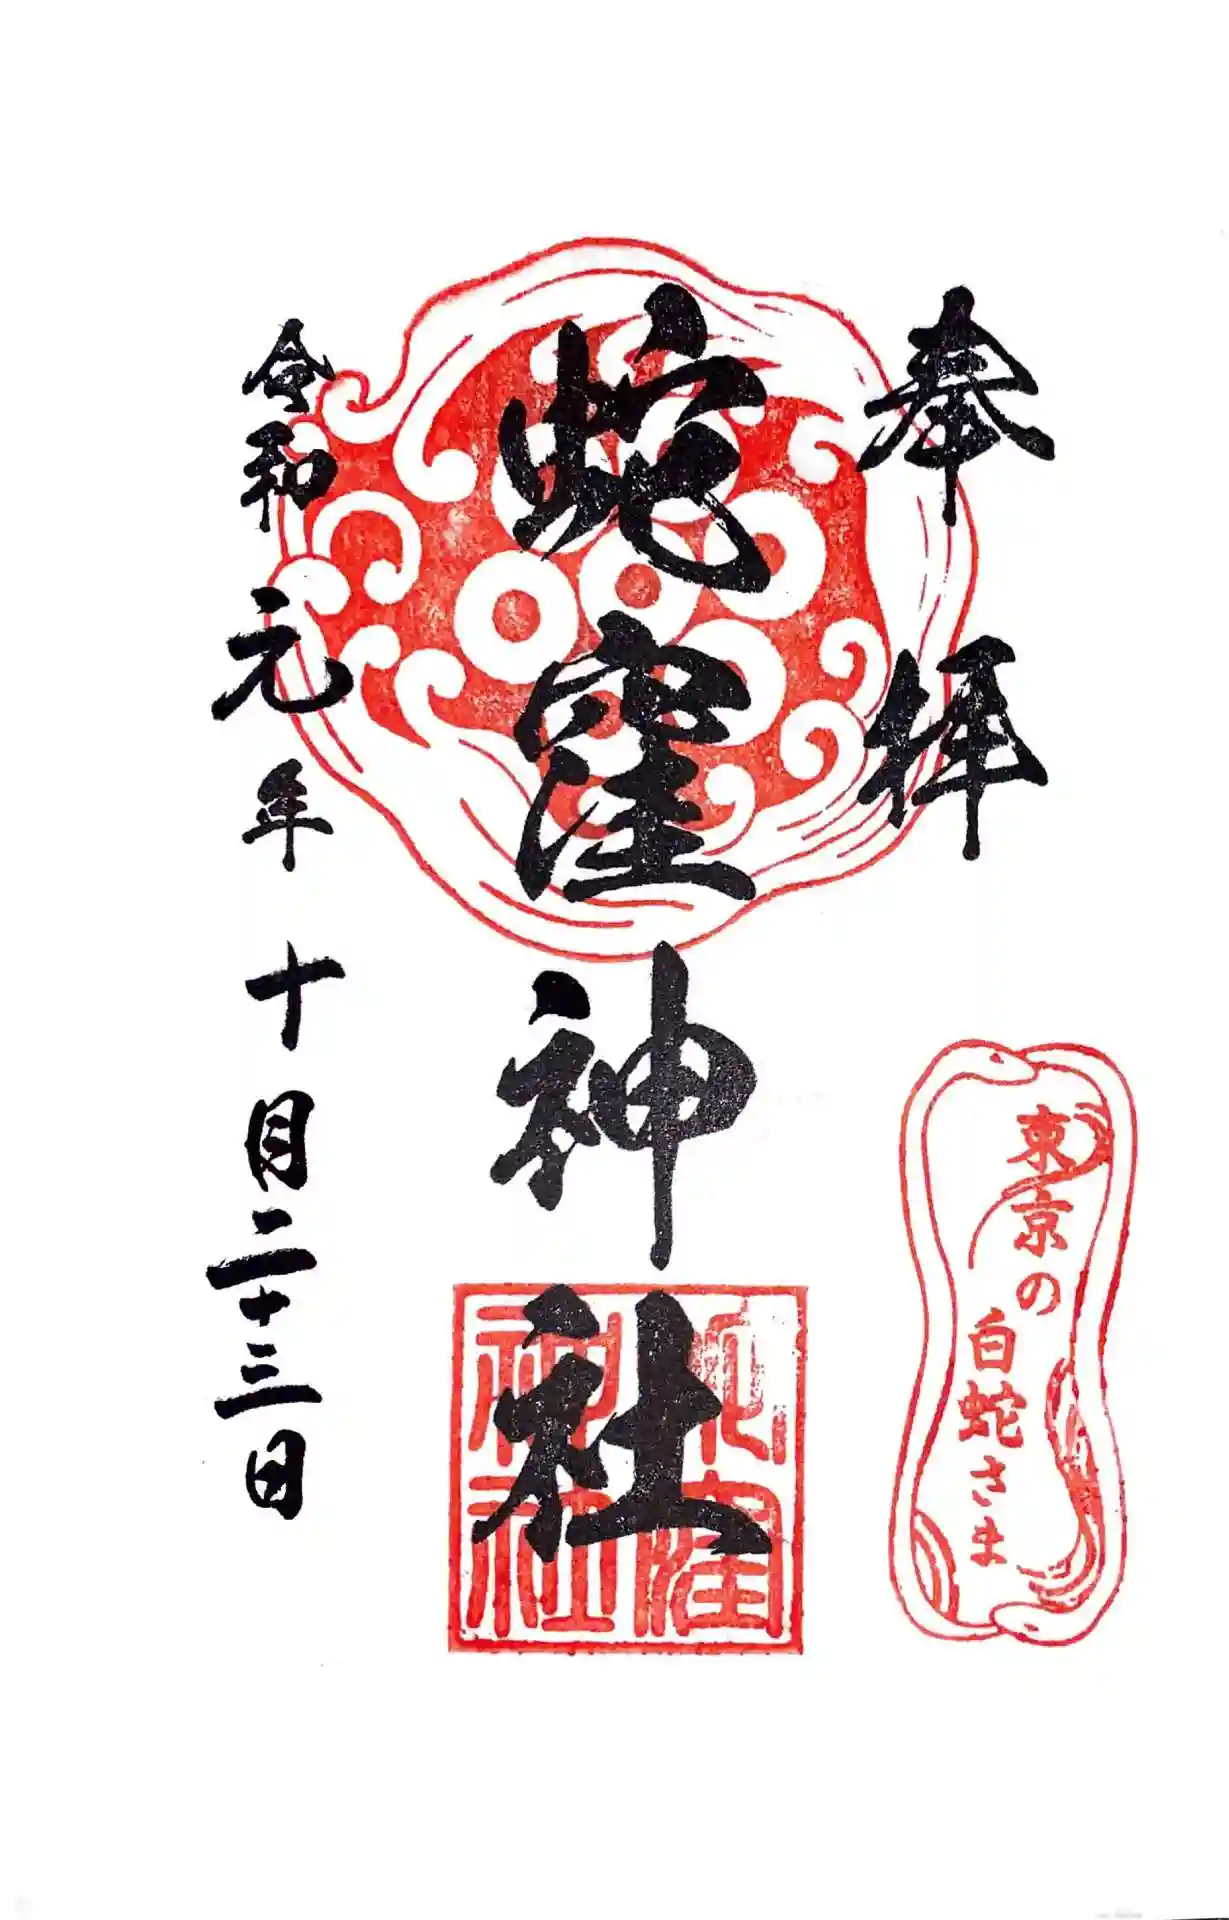 奉拝
東京の
白蛇さま
蛇窪神社
蛇窪
神社
令和元年十月二十三日